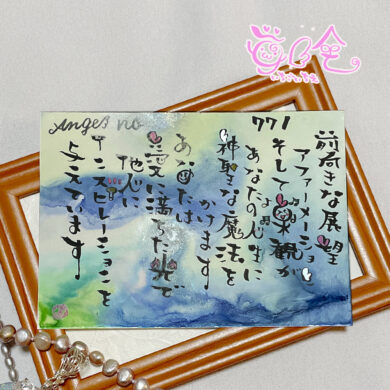 Anges no
771
前向きな展望
アファメーション
そして楽観が
あなたの人生に
神聖な魔法を
かけます
あなたは
愛に満ちた光で
他人に
インスピレーションを
与えています